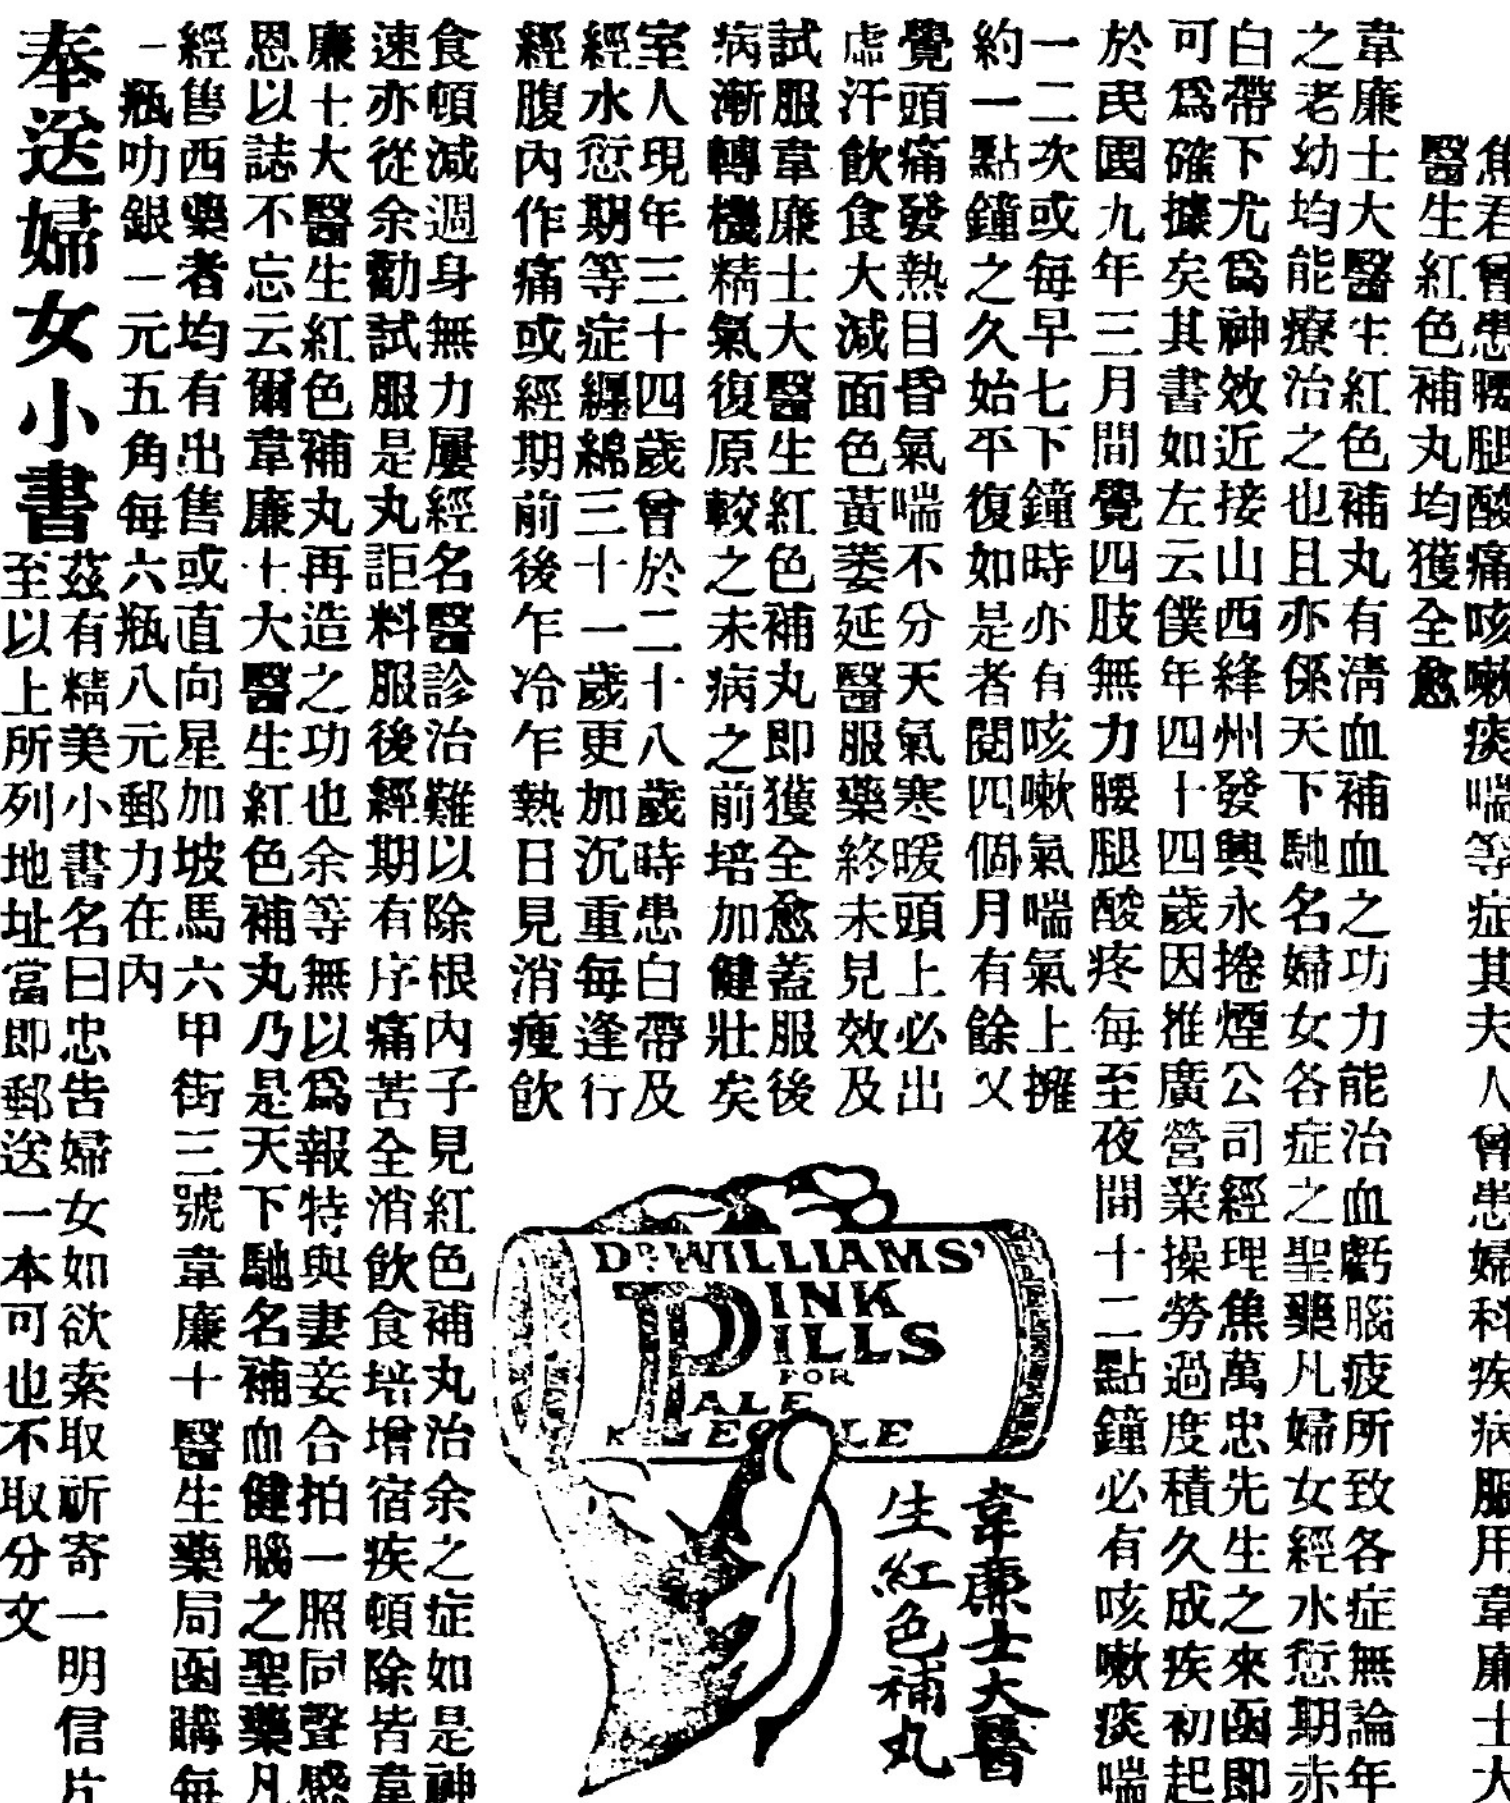 焦君曾患腰腿酸痛咳嗽痰喘等症其夫人曾患婦科疾病服用韋廉士大
醫生紅色補丸均獲全愈
韋廉士大醫生紅色補丸有清血補血之功力能治血虧腦疲所致各症無論年
之老幼均能療治之也且亦係天下馳名婦女各症之聖藥凡婦女經水愆期赤
白帶下尤爲神效近接山西絳州發興永捲煙公司經理焦萬忠先生之來函即
可爲確據矣其書如左云僕年四十四歲因推廣營業操勞過度積久成疾初起
於民國九年三月間覺四肢無力腰腿酸疼每至夜間十二點鐘必有咳嗽痰喘
一二次或每早七下鐘時亦有咳嗽氣喘氣上擁
約一點鐘之久始平復如是者閱四個月有餘又
覺頭痛發熱目昏氣喘不分天氣寒暖頭上必出
虛汗飲食大減面色黃萎延醫服藥終未見效及
試服韋廉士大醫生紅色補丸即獲全愈蓋服後
病漸轉機精氣復原較之未病之前培加健壯矣
室人現年三十四歲曾於二十八歲時患白帶及
經水愆期等症纏綿三十一歲更加沉重每逢行
經腹內作痛或經期前後乍冷乍熱日見消瘦飲
DR. WILLIAMS'
PINK
PILLS
FOR
PALE
PEOPLE
韋廉士大醫
生紅色補丸
食頓減週身無力屢經名醫診治難以除根內子見紅色補丸治余之症如是神
速亦從余勸試服是丸詎料服後經期有序痛苦全消飲食培增宿疾頓除皆韋
廉士大醫生紅色補丸再造之功也余等無以爲報特與妻妾合拍一照同聲感
恩以誌不忘云爾韋廉士大醫生紅色補丸乃是天下馳名補血健腦之聖藥凡
經售西藥者均有出售或直向星加坡馬六甲街三號韋廉士醫生藥局函購每
一瓶叻銀一元五角每六瓶八元郵力在內
奉送婦女小書
茲有精美小書名曰忠告婦女如欲索取祈寄一明信片
至以上所列地址當即郵送一本可也不取分文